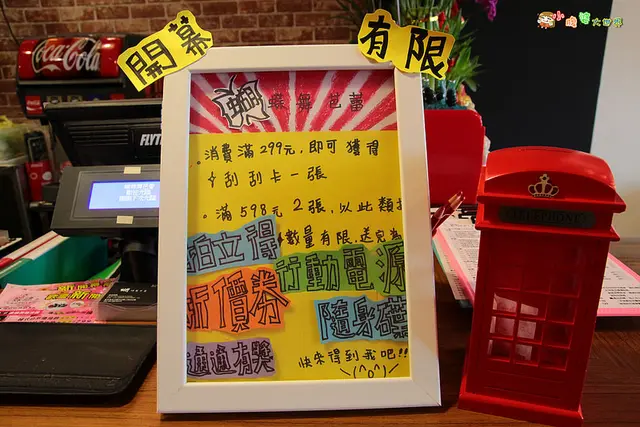 開幕
有限
蝶舞芭蕾
。消費滿299元,即可獲得
刮刮卡一張
。滿598元2張,以此類推
數量有限,送完為
拍立得
行動電源
折價券
隨身碟
適適有獎
快來得到我吧!!
\(^o^)/
Coca-Cola
FLYT
TELEPHONE
小鳴鴨大世界